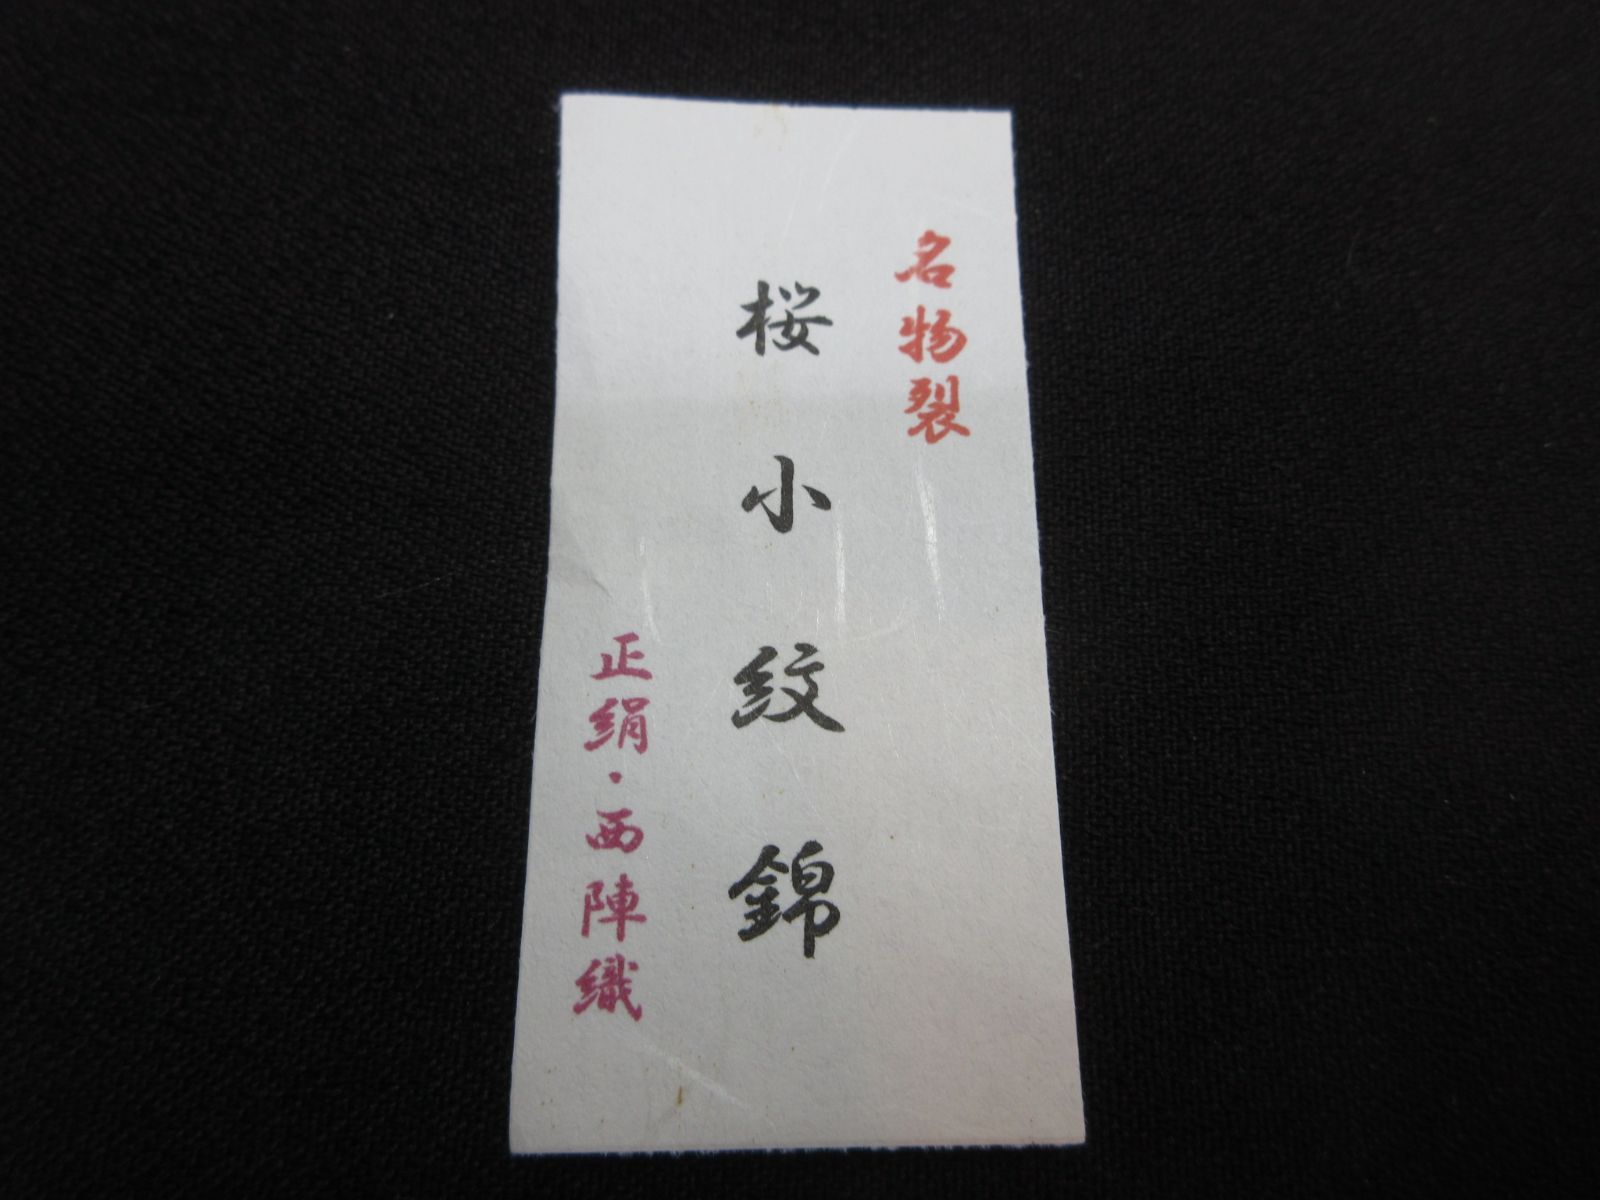 名物裂
桜小紋錦
正絹・西陣織